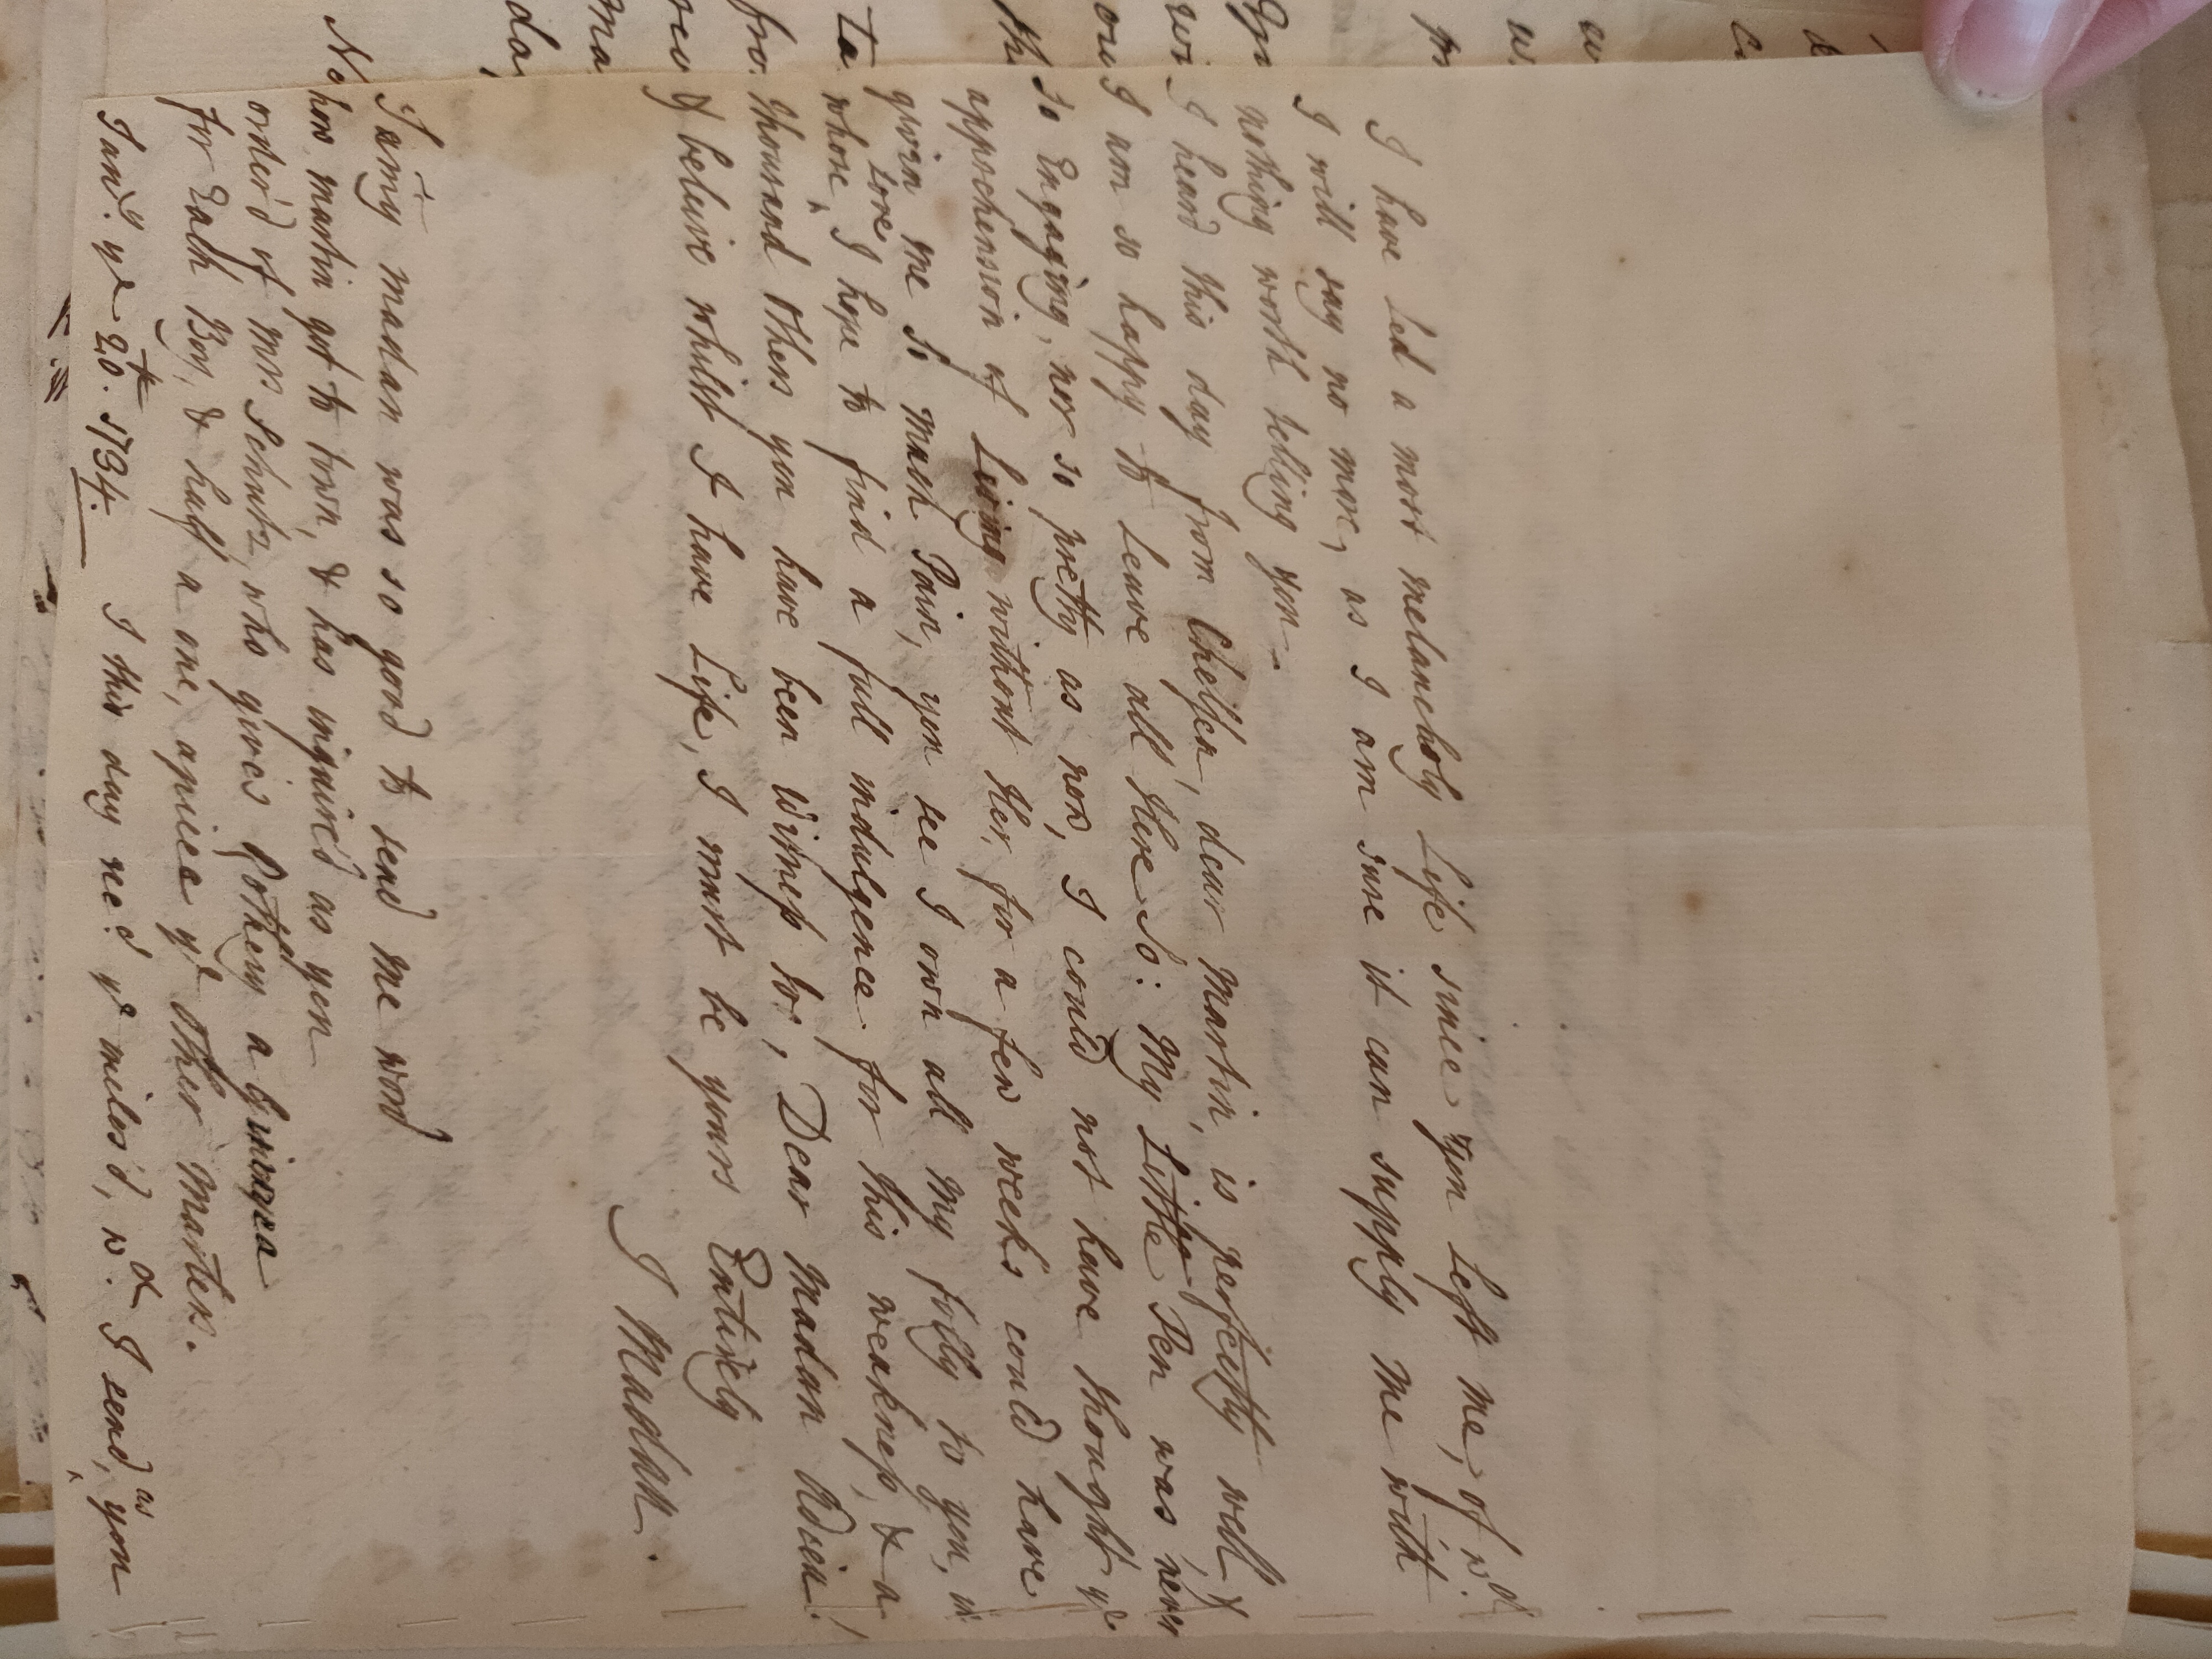 I have Led a most melancholy Life since you Left me, of wd.
I will say no more, as I am sure it can supply me with
nothing worth telling you_
I heard this day from Chelsea, dear martin, is perfectly well, &
I am so happy to Leave all Here So: My Little Pen was never
so Engaging, nor so pretty as now, I could not have thought ye
apprehension of Living without Her, for a few weeks could have
given me so much Pain, you see I own all my folly to you, in
whose Love I hope to find a full indulgence for this weakness, & a
thousand others you have been Witness too, Dear Madan Adieu!
& beleive whilst I have Life, I must be yours Entirely
J Madan.
Jamy madan was so good to send me word
how martin got to town, & has inquire'd as you
order'd of mrs Schutz, who gives Rothery a Guinea
for Each Boy, & half a one, apiece ye other Masters.
Jany. ye 20th. 1734. I this day recd. ye wd. I send, as you